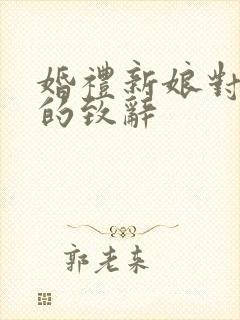 婚禮新娘對
的致辭
郭老来